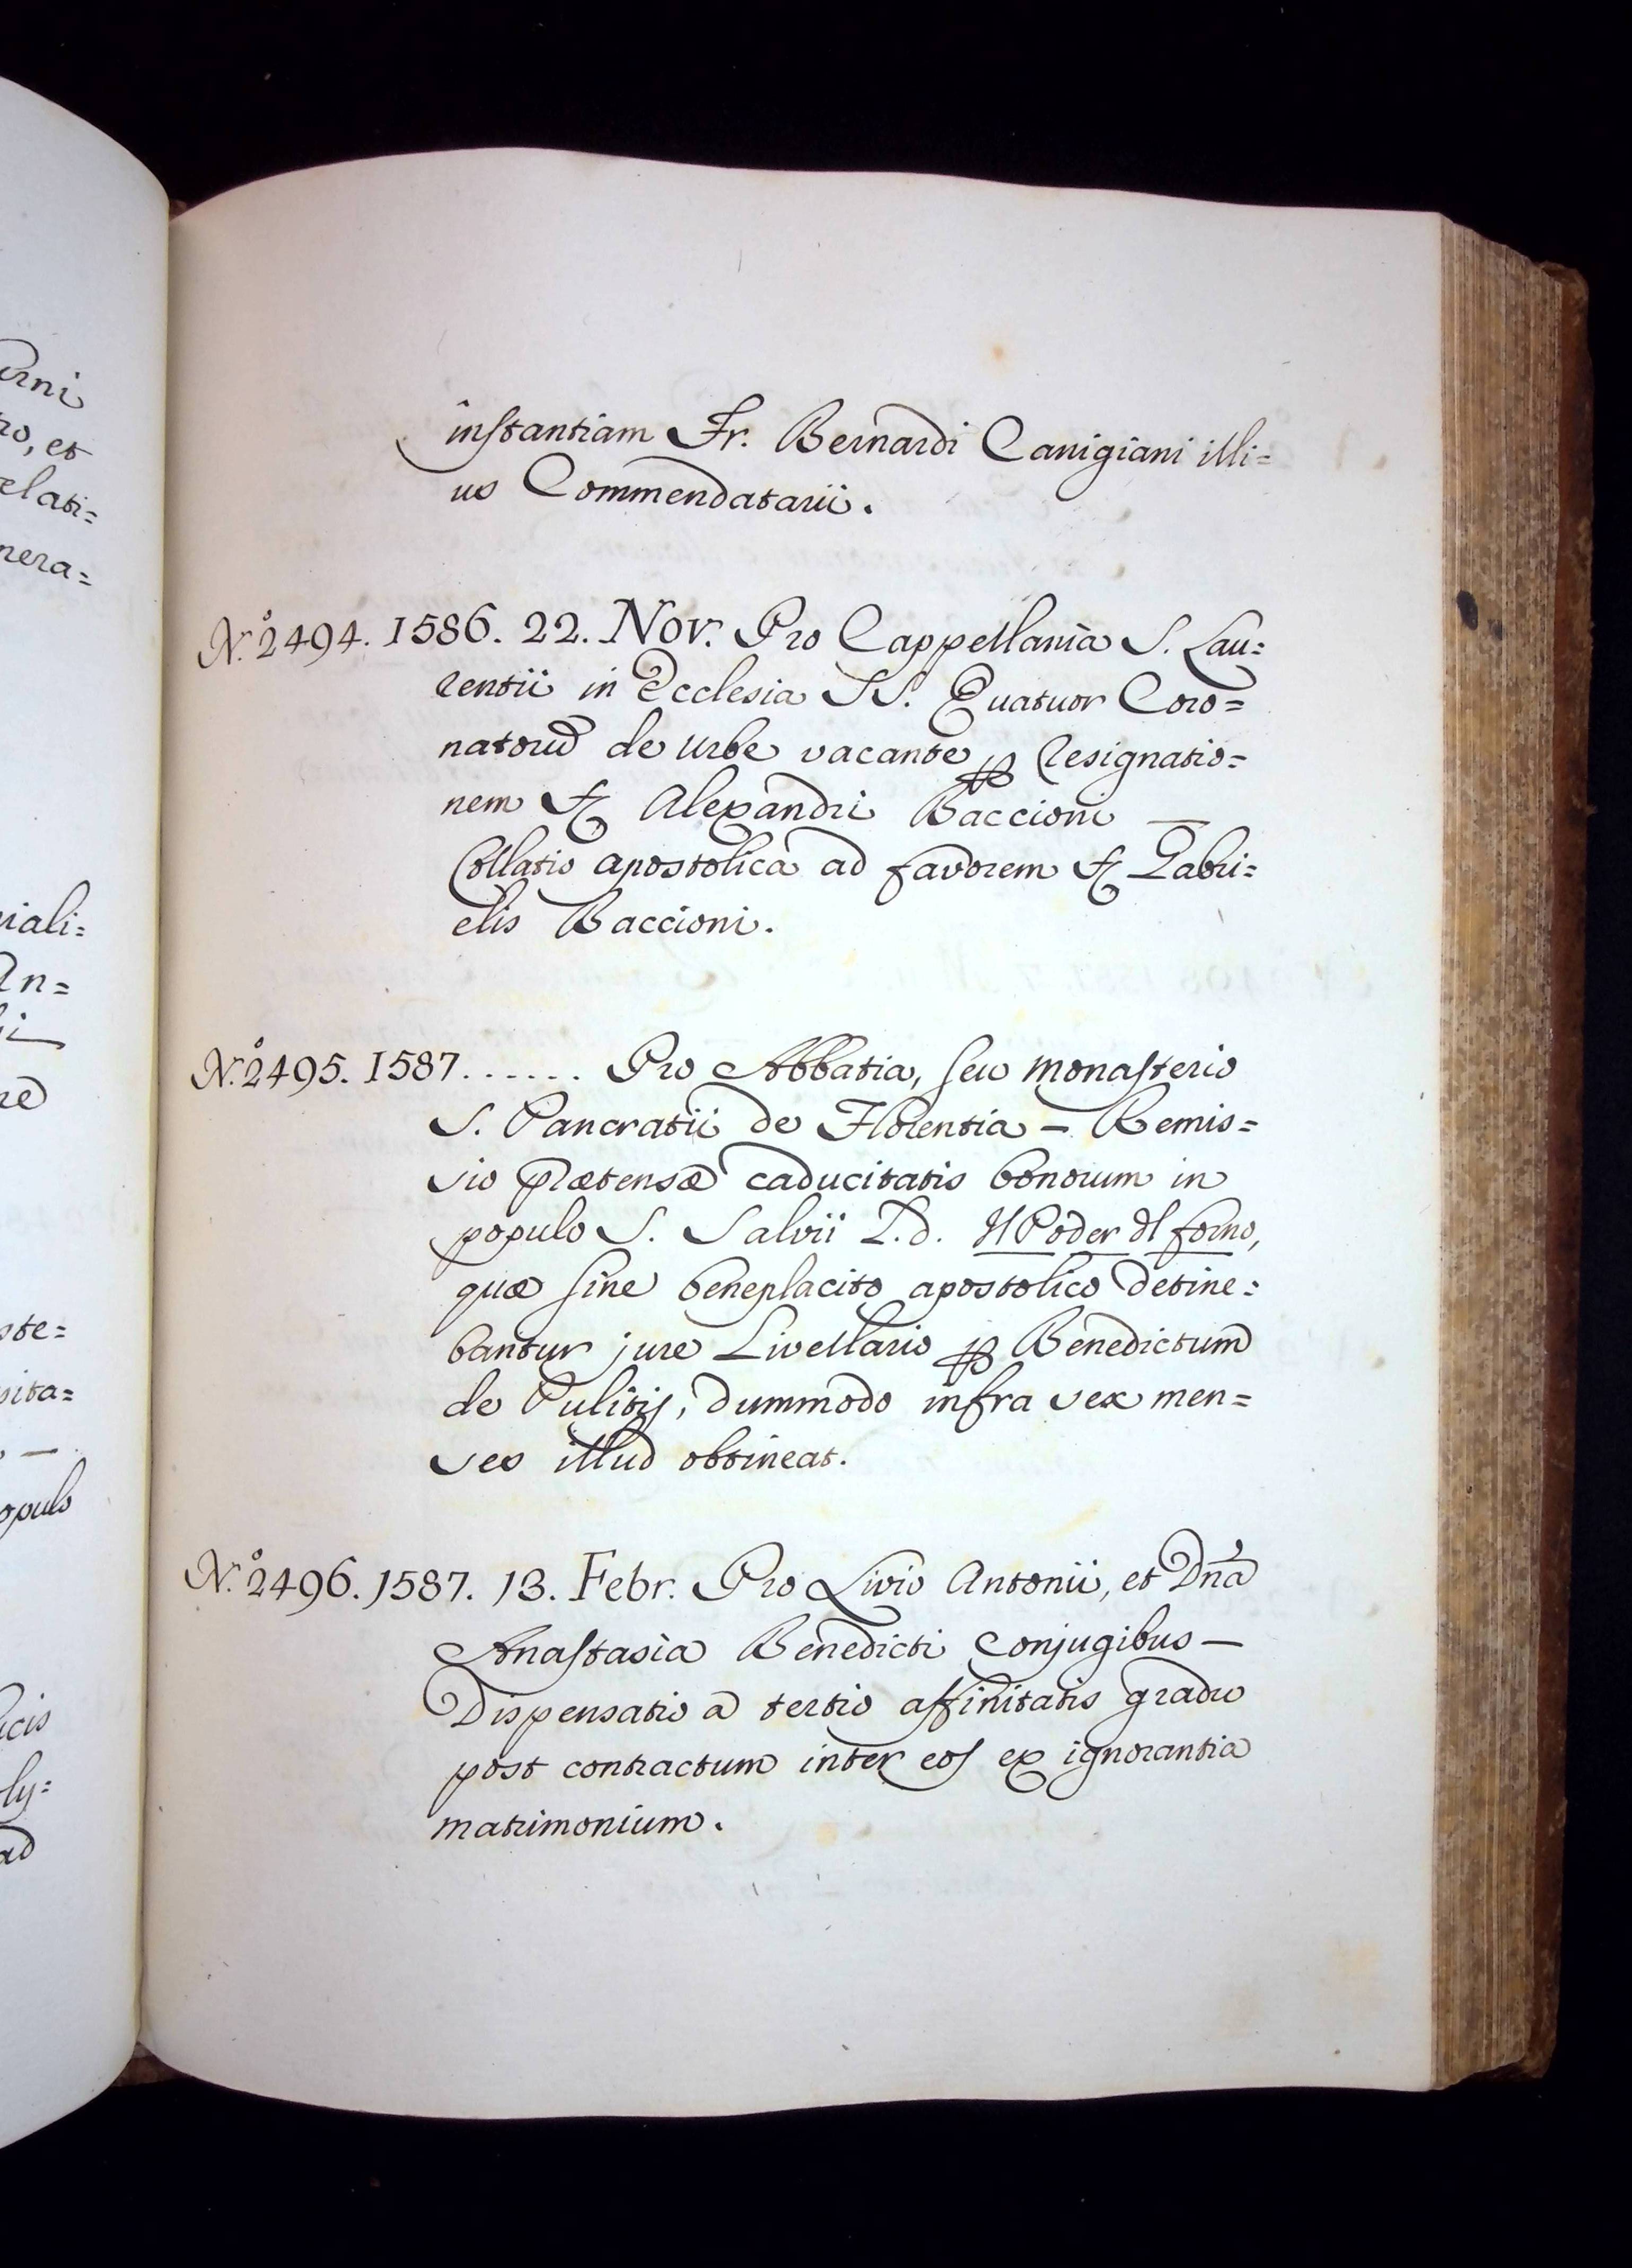 instantiam Fr. Bernardi Canigiani illi=
us Commendatarii.
N.º 2494. 1586. 22. Nov. Pro Cappellania S. Lau=
rentii in Ecclesia SS. Quatuor Coro=
natorũ de Urbe vacante ꝑ resignatio=
nem Alexandri Baccioni —
Collatio apostolica ad favorem Gabri=
elis Baccioni.
N.º 2495. 1587. . . . . . Pro Abbatia, seu monasterio
S. Pancratii de Florentia – Remis=
sio prætensæ caducitatis bonorum in
populo S. Salvii l. d. Il Poder dl forno,
quæ sine beneplacito apostolico detine=
bantur jure Livellario ꝑ Benedictum
de Pulitis, dummodo infra sex men=
ses illud obtineat.
N.º 2496. 1587. 13. Febr. Pro Livio Antonii, et Dña
Anastasia Benedicti conjugibus —
Dispensatio a tertio affinitatis gradu
post contractum inter eos ex ignorantia
matrimonium.